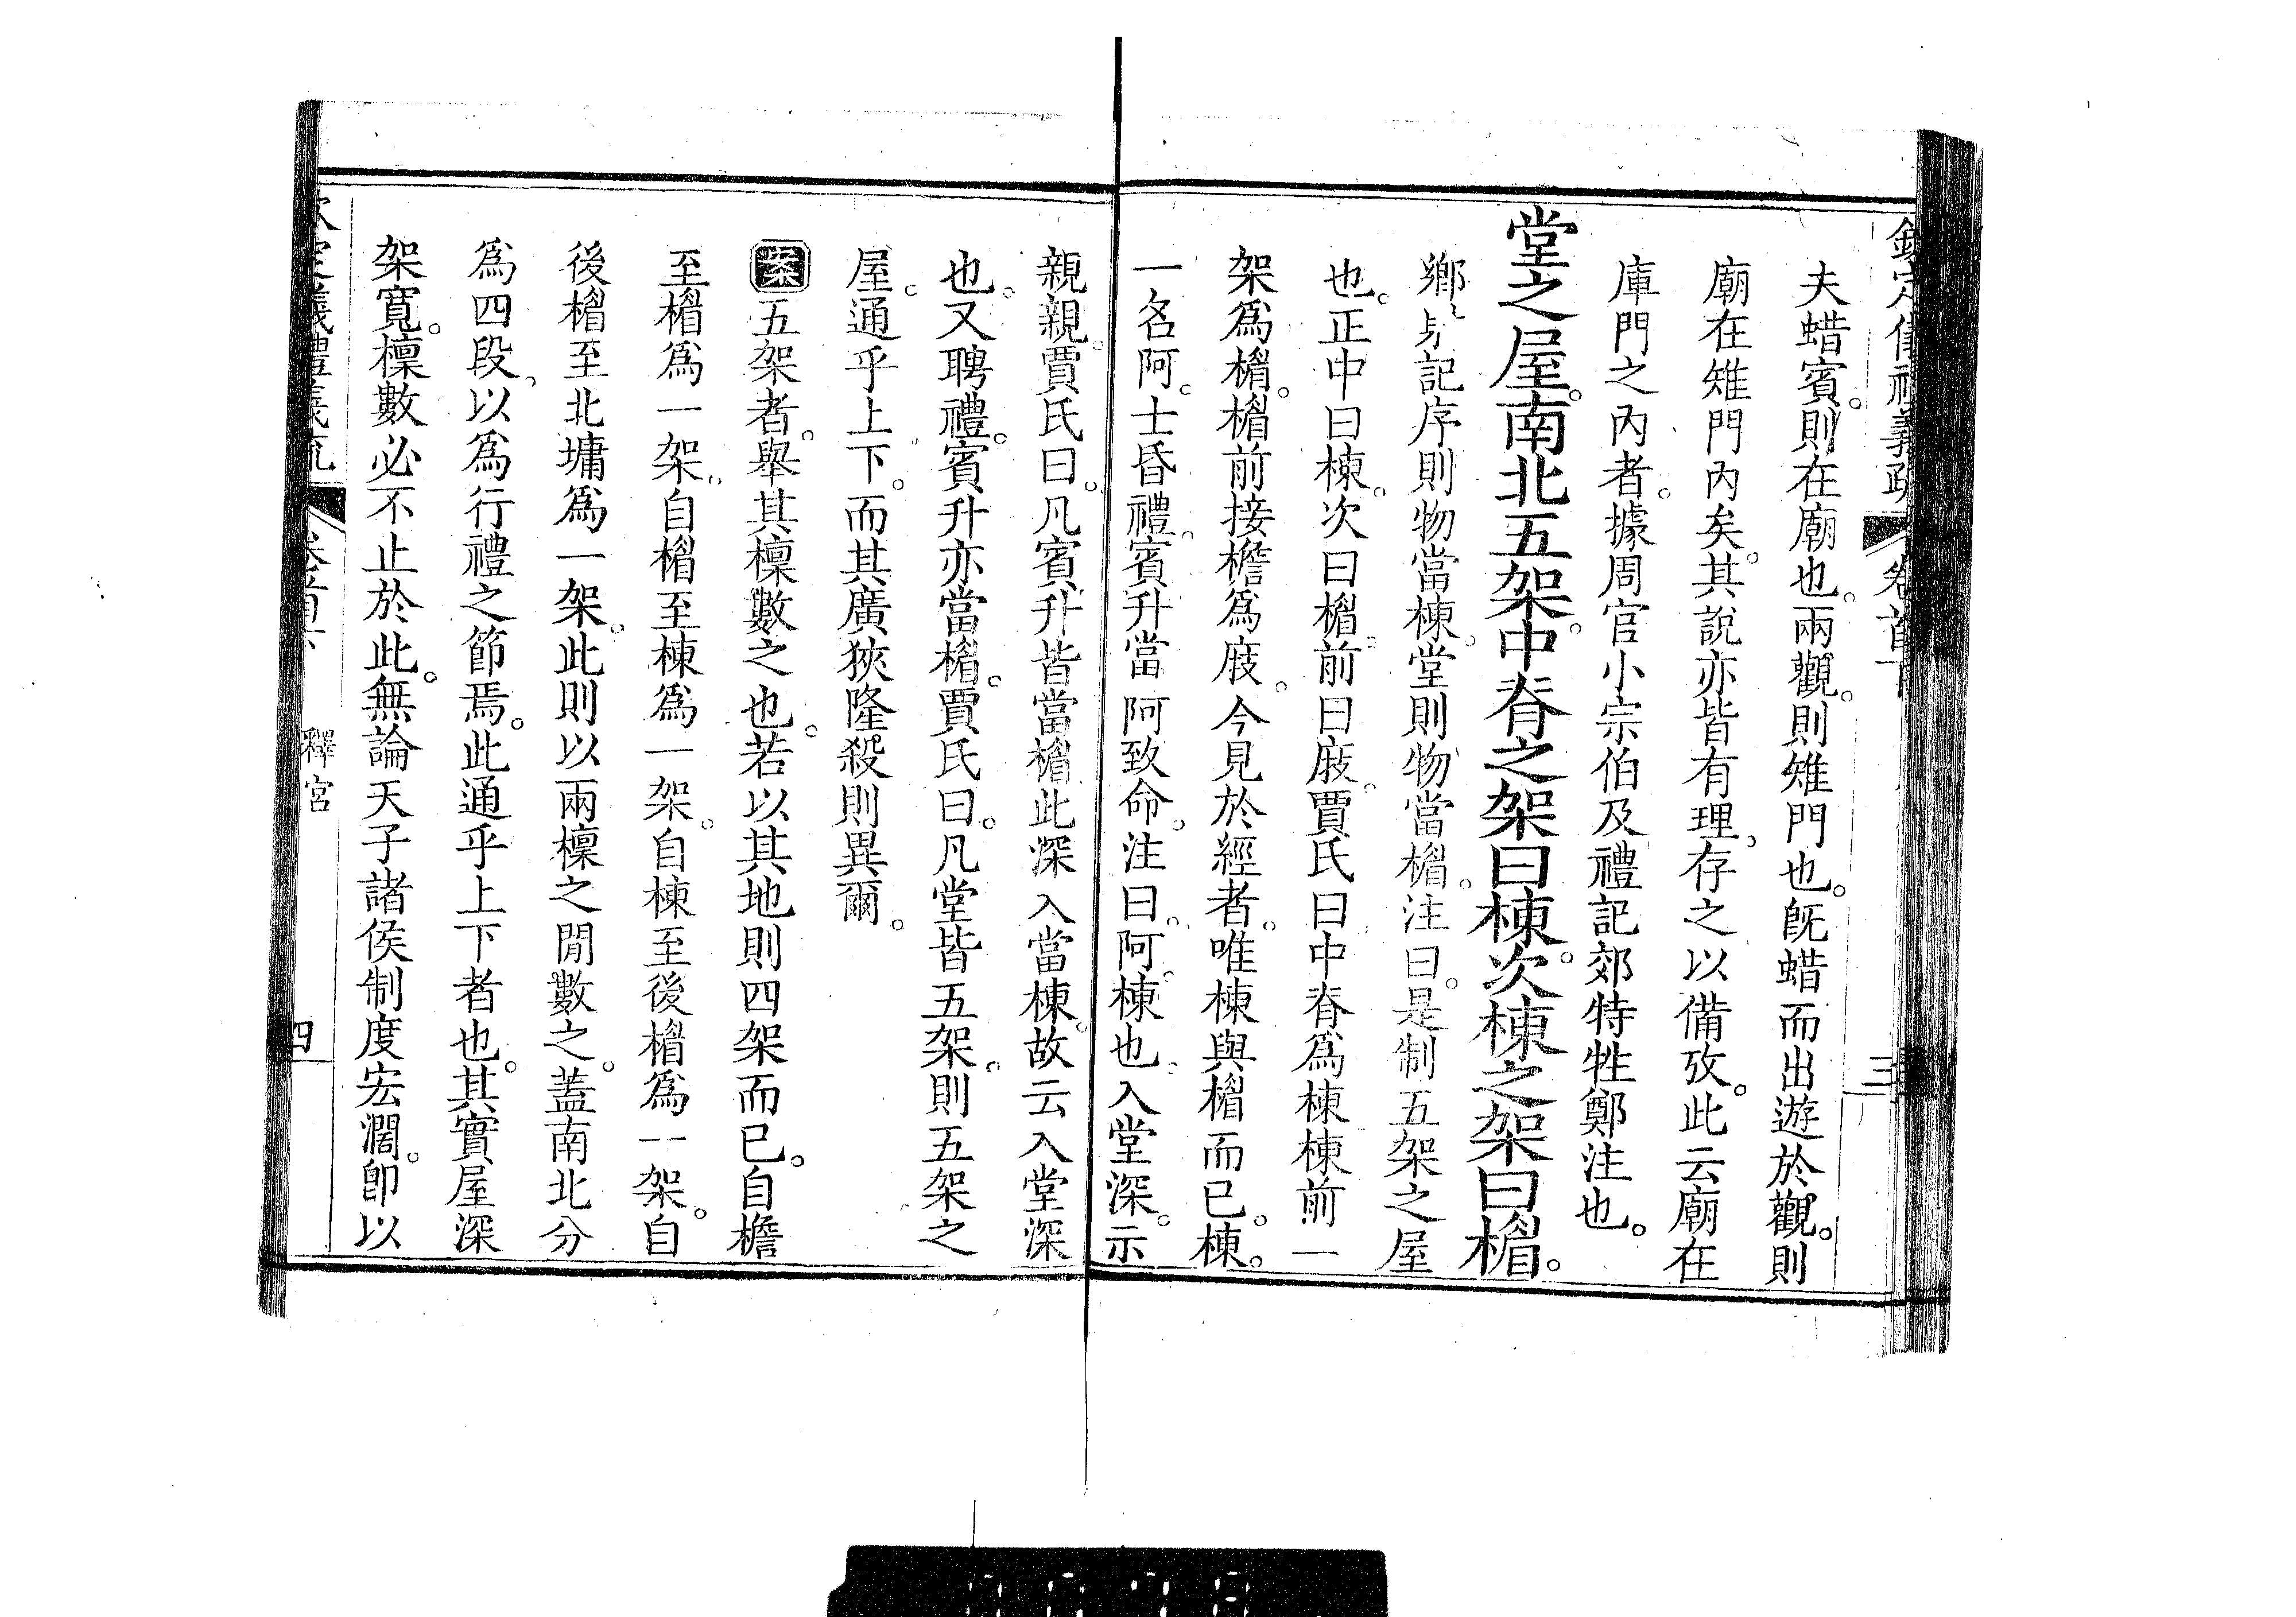 欽定儀禮義疏 卷首下 三
夫蜡賓。則在廟也。兩觀。則雉門也。旣蜡而出遊於觀。則
廟在雉門內矣。其說亦皆有理。存之以備攷。此云廟在
庫門之內者。據周官小宗伯及禮記郊特牲鄭注也。
堂之屋。南北五架。中脊之架曰棟。次棟之架曰楣。
鄉射記序則物當棟。堂則物當楣。注曰。是制五架之屋
也。正中曰棟。次曰楣。前曰庪。賈氏曰中脊爲棟棟前一
架爲楣。楣前接檐爲庪。今見於經者。唯棟與楣而已。棟。
一名阿。士昏禮。賓升當阿致命。注曰。阿。棟也。入堂深。示
親親。賈氏曰。凡賓升皆當楣此深入當棟。故云入堂深
也。又聘禮。賓升亦當楣。賈氏曰。凡堂皆五架。則五架之
屋。通乎上下。而其廣狹隆殺則異爾。
案五架者。舉其檁數之也。若以其地則四架而已。自檐
至楣爲一架。自楣至棟爲一架。自棟至後楣爲一架。自
後楣至北墉爲一架。此則以兩檁之閒數之。蓋南北分
爲四段。以爲行禮之節焉。此通乎上下者也。其實屋深
架寬。檁數必不止於此。無論天子諸侯制度宏濶。卽以
欽定儀禮義疏 卷首下 釋宮 四